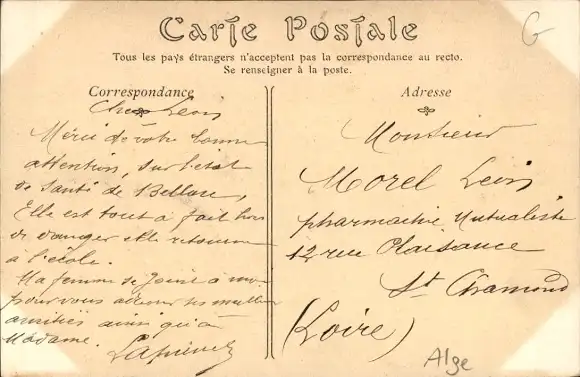 Carte Postale
G
Tous les pays étrangers n'acceptent pas la correspondance au recto.
Se renseigner à la poste.
Correspondance
Cher Léon
Merci de votre bonne
attention, sur l'état
de santé de
Elle est tout à fait hors
de danger elle retourne
à l'école.
Ma femme se joint à moi
pour vous
amitiés ainsi qu'à
Madame.
Adresse
Monsieur
Morel Léon
pharmacie Mutualiste
12 rue Plaisance
St Chamond
(Loire)
Alge